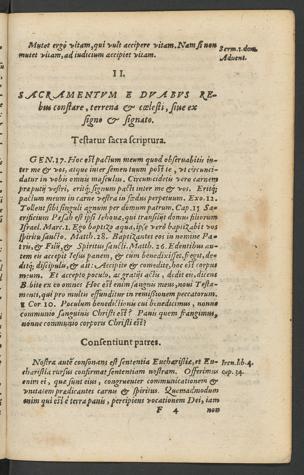 Mutet ergò vitam, qui vult accipere vitam. Nam si non
mutet vitam, ad iudicium accipiet vitam.
Serm. 1. dom.
Advent.
II.
SACRAMENTVM E DVABVS RE-
bus constare, terrena & cœlesti, siue ex
signo & signato.
Testatur sacra scriptura.
GEN. 17. Hoc est pactum meum quod obseruabitis in-
ter me & vos, atque inter semen tuum post te, vt circunci-
datur in vobis omnis masculus. Circumcidetis vero carnem
præputij vestri, eritq; signum pacti inter me & vos. Eritq;
pactum meum in carne vestra in fœdus perpetuum. Exo. 12.
Tollent sibi singuli agnum per domum patrum. Cap. 13. Sa-
crificium Pesah est ipsi Iehouæ, qui transijt domus filiorum
Israel. Marc. 1. Ego baptizo aqua, ipse verò baptizabit vos
spiritu sancto. Matth. 28. Baptizantes eos in nomine Pa-
tris, & Filij, & Spiritus sancti. Matth. 26. Edentibus au-
tem eis accepit Iesus panem, & cum benedixisset, fregit, de-
ditq; discipulis, & ait: Accipite & comedite, hoc est corpus
meum. Et accepto poculo, ac gratijs actis, dedit eis, dicens
Bibite ex eo omnes: Hoc est enim sanguis meus, noui Testa-
menti, qui pro multis effunditur in remissionem peccatorum.
1 Cor 10. Poculum benedictionis cui benedicimus, nonne
communio sanguinis Christi est? Panis quem frangimus,
nonne communio corporis Christi est?
Consentiunt patres.
Nostra autē consonans est sententia Eucharistiæ, et Eu-
charistia rursus confirmat sententiam nostram. Offerimus
Iren. lib. 4.
cap. 34.
enim ei, quæ sunt eius, congruenter communicationem &
vnitatem prædicantes carnis & spiritus. Quemadmodum
enim qui est è terra panis, percipiens vocationem Dei, iam
F 4 non